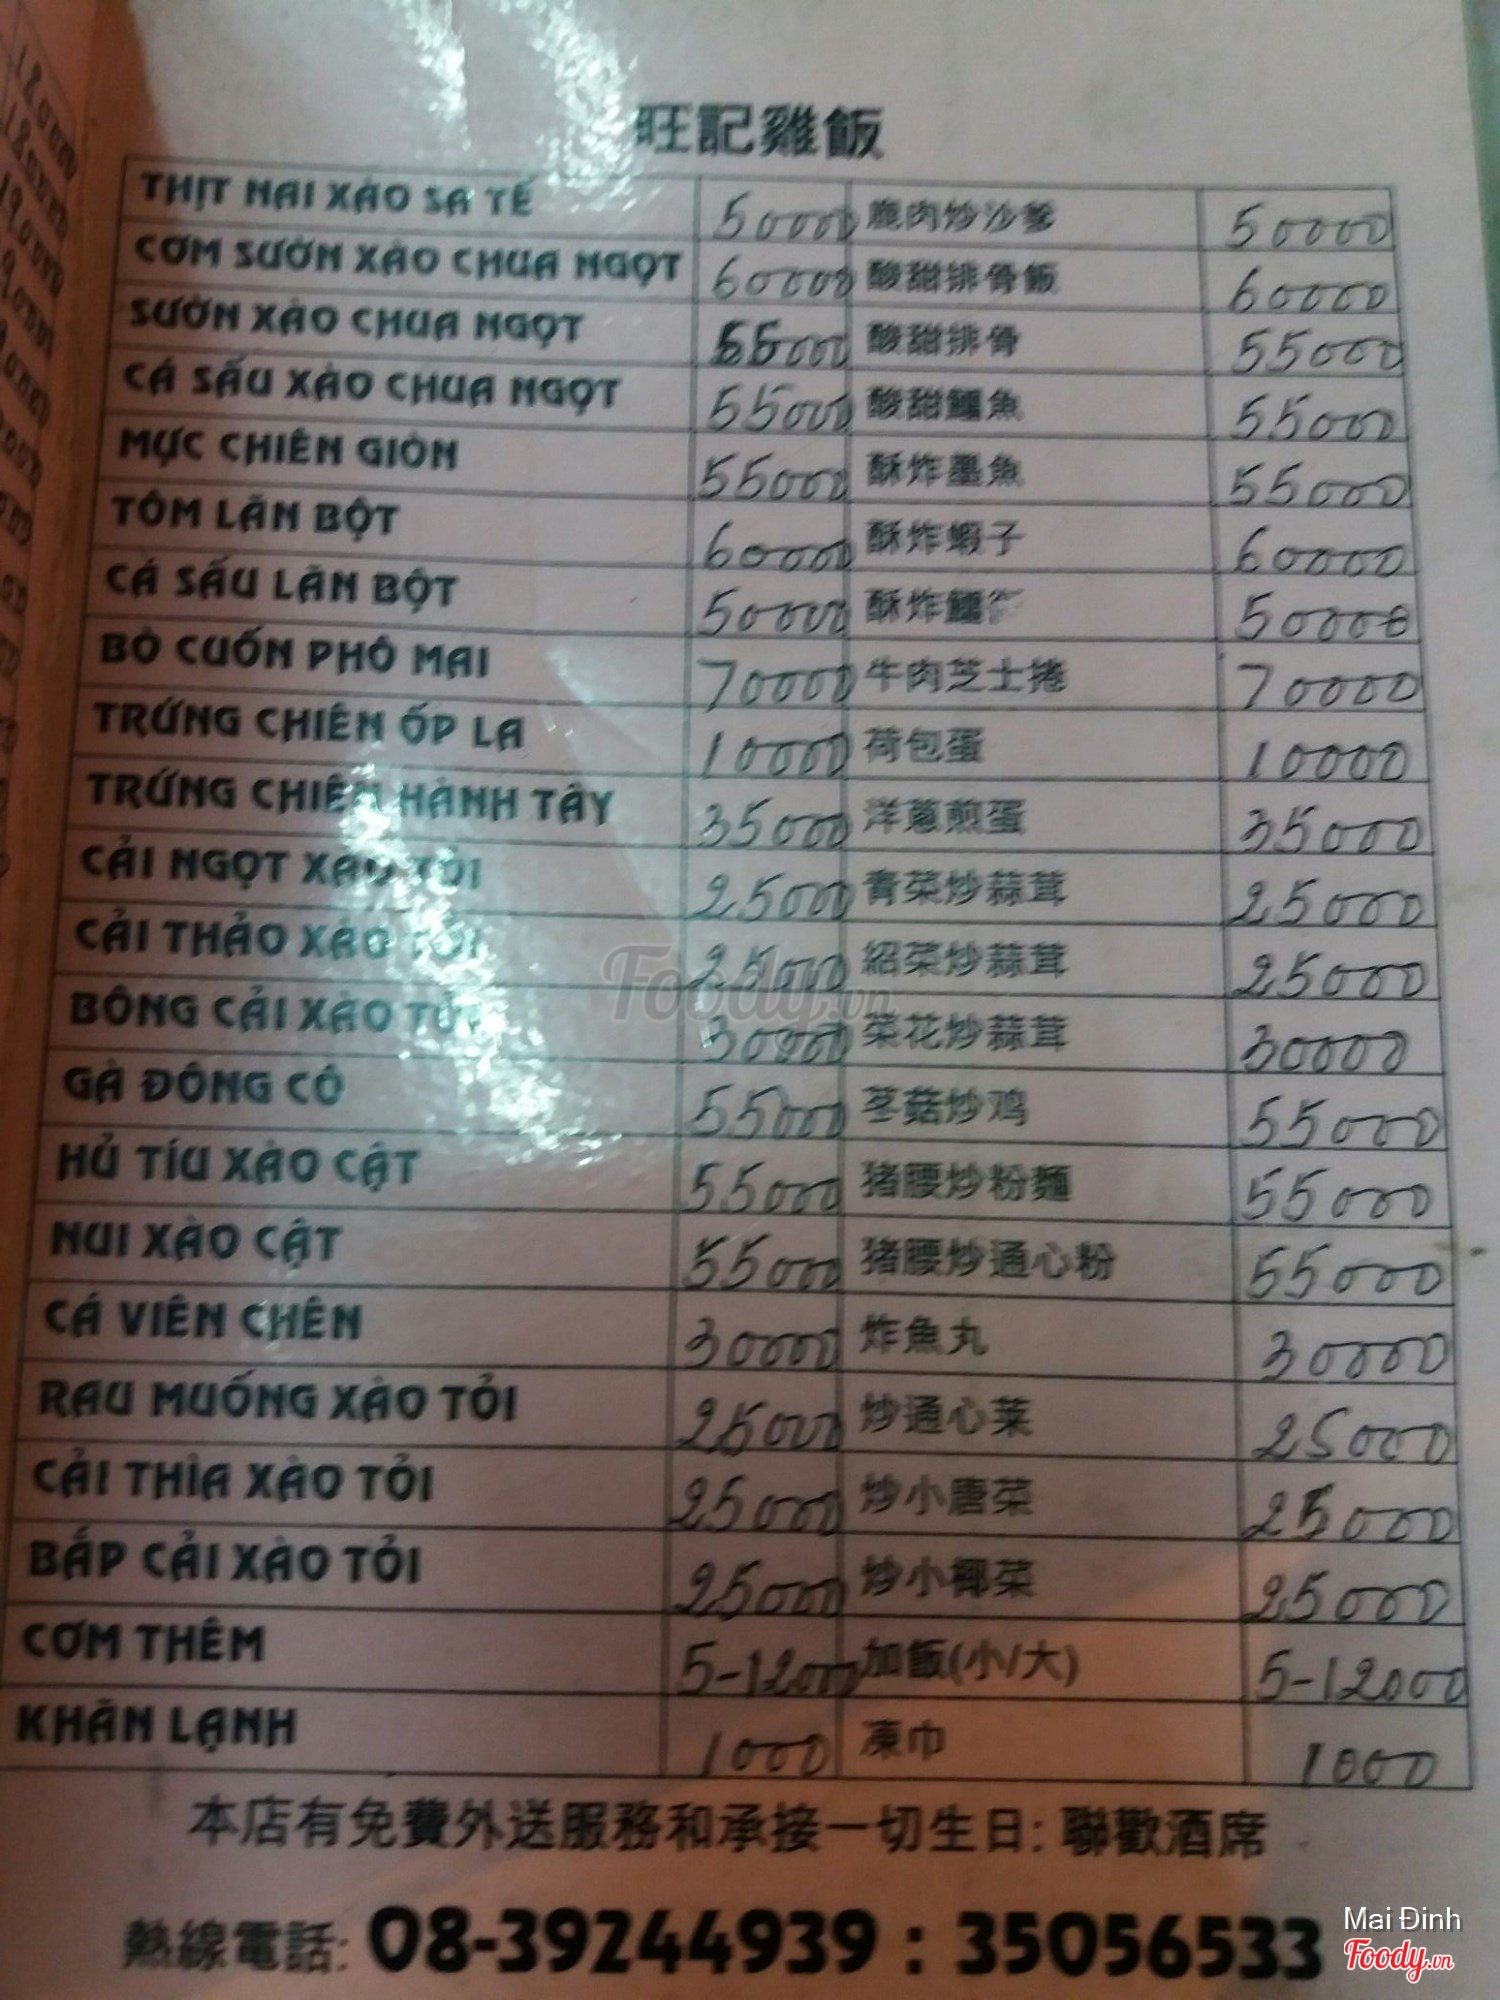 旺記雞飯
THỊT NAI XÀO SA TẾ 50000 鹿肉炒沙爹 50000
CƠM SƯỜN XÀO CHUA NGỌT 60000 酸甜排骨飯 60000
SƯỜN XÀO CHUA NGỌT 55000 酸甜排骨 55000
CÁ SẤU XÀO CHUA NGỌT 55000 酸甜鱷魚 55000
MỰC CHIÊN GIÒN 55000 酥炸墨魚 55000
TÔM LĂN BỘT 60000 酥炸蝦子 60000
CÁ SẤU LĂN BỘT 50000 酥炸鱷 50000
BÒ CUỐN PHÔ MAI 70000 牛肉芝士捲 70000
TRỨNG CHIÊN ỐP LA 10000 荷包蛋 10000
TRỨNG CHIÊN HÀNH TÂY 35000 洋蔥煎蛋 35000
CẢI NGỌT XÀO TỎI 25000 青菜炒蒜茸 25000
CẢI THẢO XÀO TỎI 25000 紹菜炒蒜茸 25000
BÔNG CẢI XÀO TỎI 30000 菜花炒蒜茸 30000
GÀ ĐÔNG CÔ 55000 苳菇炒鸡 55000
HỦ TÍU XÀO CẬT 55000 猪腰炒粉麵 55000
NUI XÀO CẬT 55000 猪腰炒通心粉 55000
CÁ VIÊN CHÊN 30000 炸魚丸 30000
RAU MUỐNG XÀO TỎI 25000 炒通心菜 25000
CẢI THÌA XÀO TỎI 25000 炒小唐菜 25000
BẮP CẢI XÀO TỎI 25000 炒小椰菜 25000
CƠM THÊM 5-12000 加飯(小/大) 5-12000
KHĂN LẠNH 1000 凍巾 1000
本店有免費外送服務和承接一切生日: 聯歡酒席
熱線電話: 08-39244939 : 35056533
Foody.vn
Mai Đinh
Foody.vn